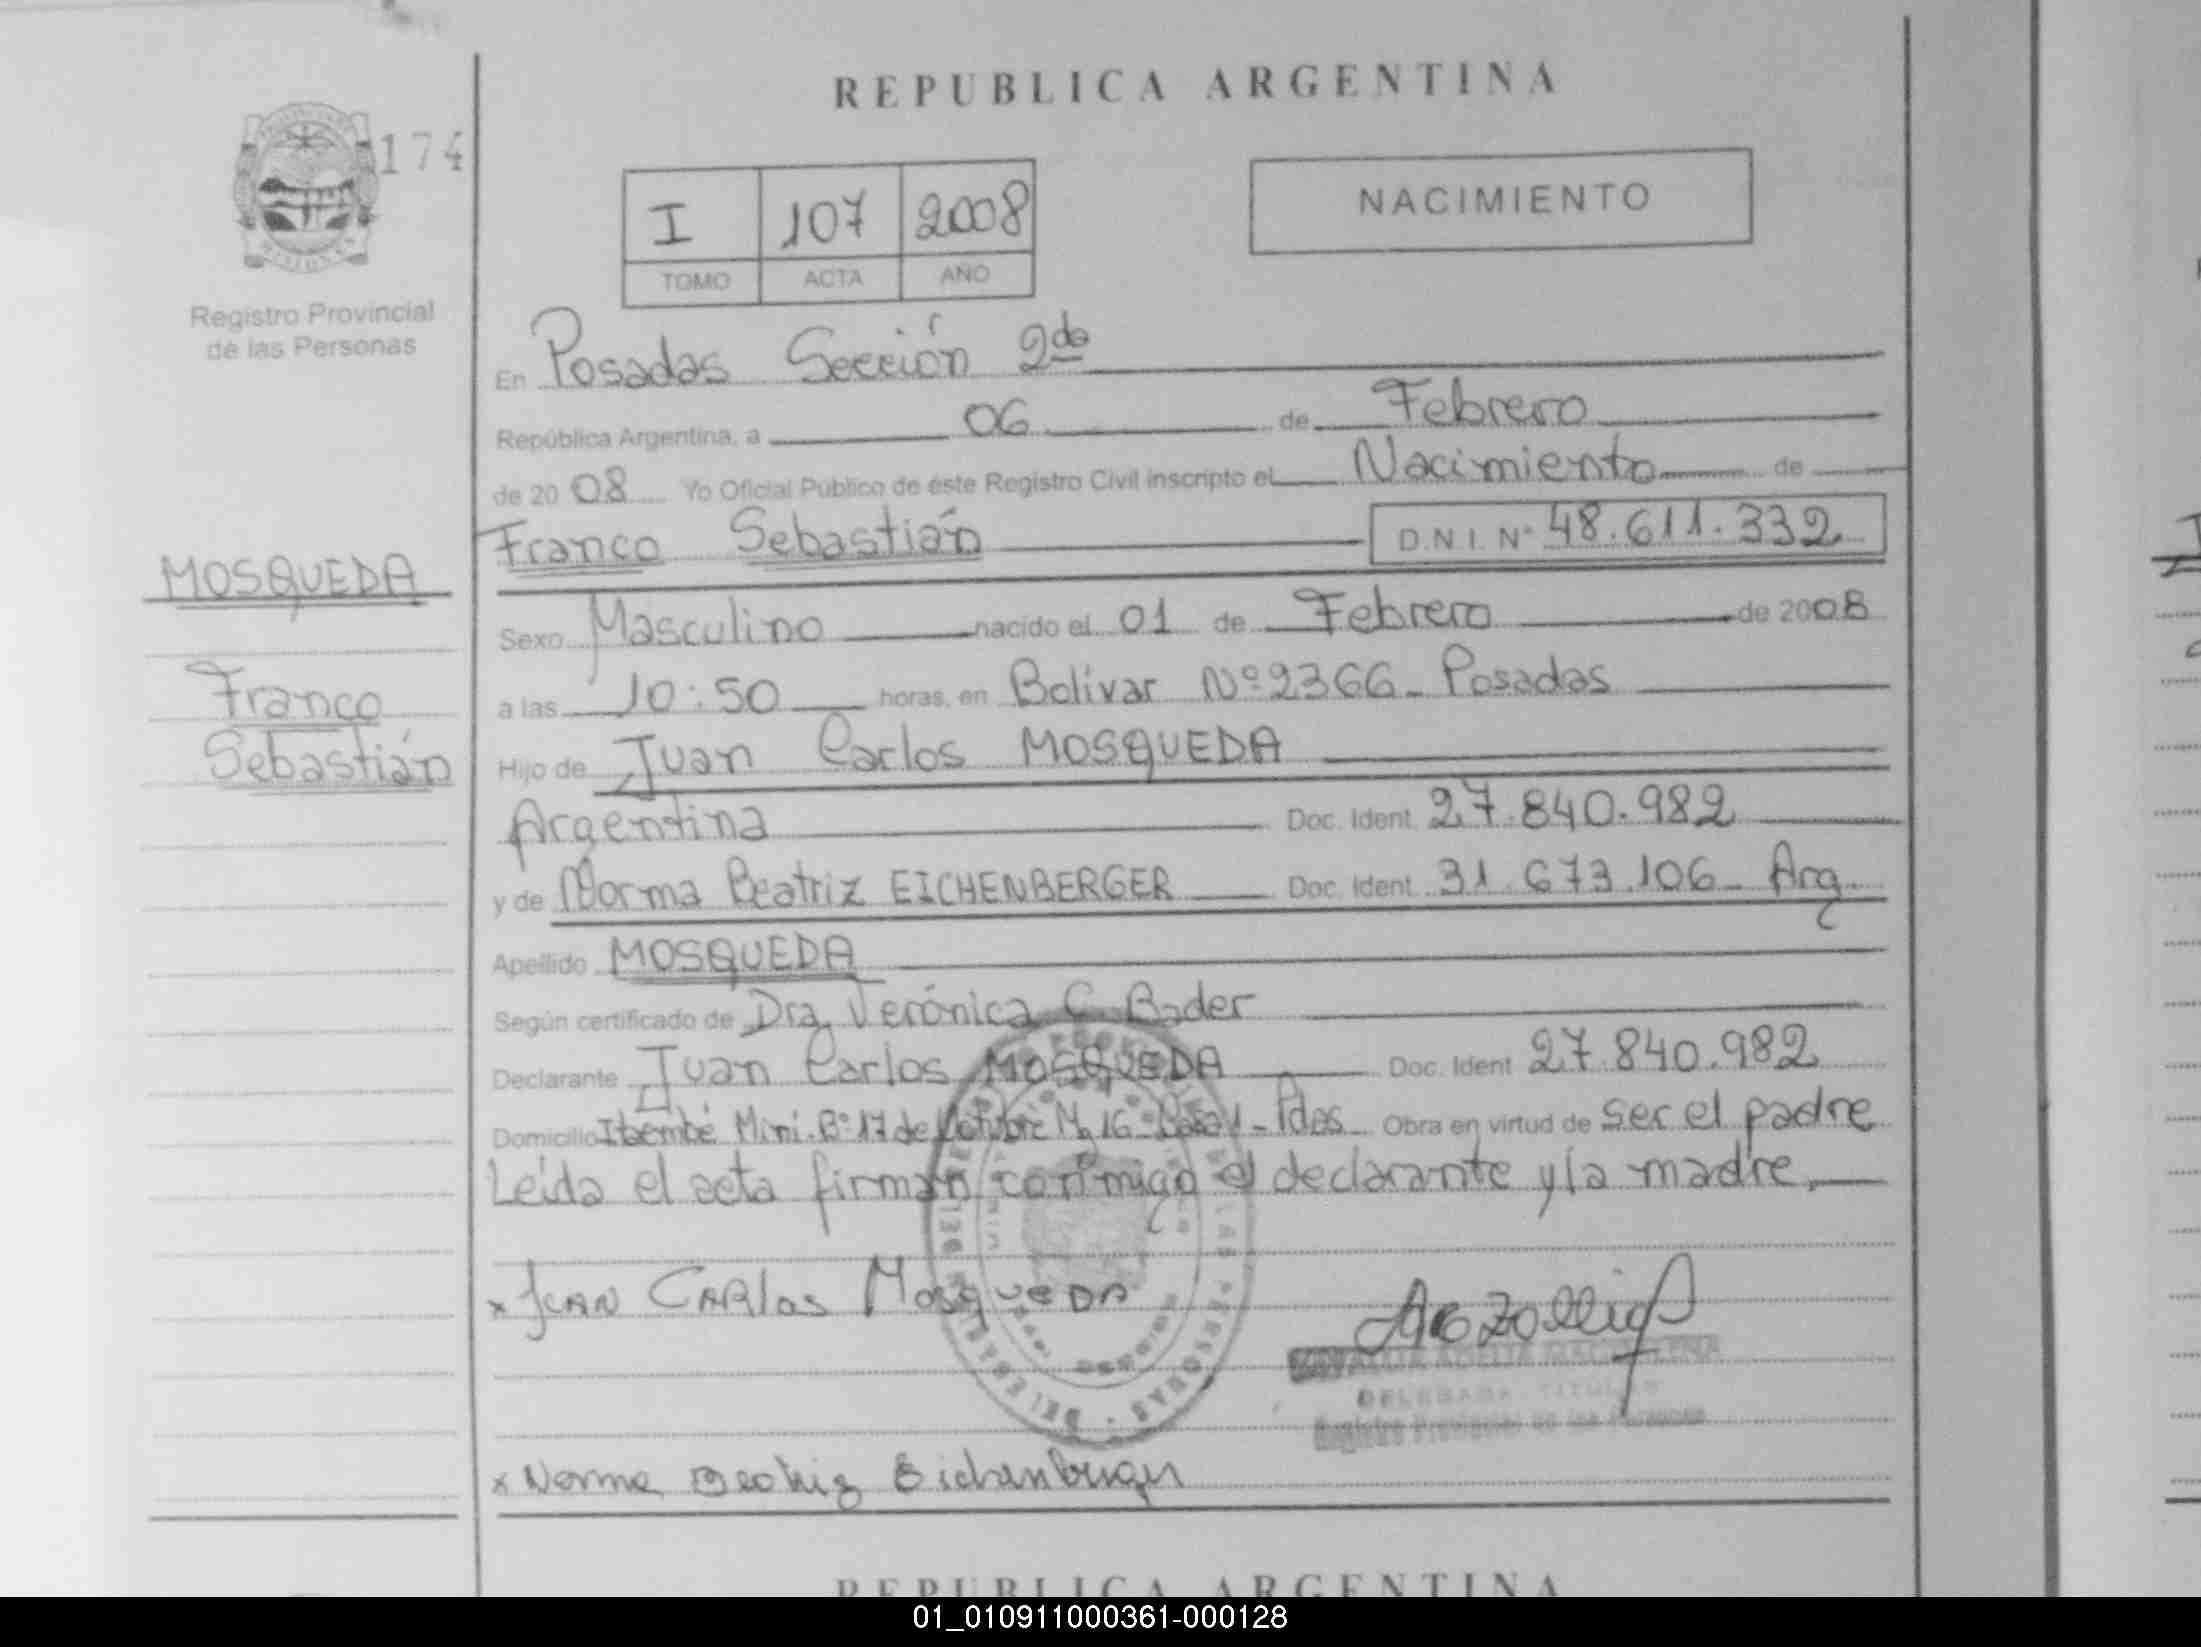 REPUBLICA ARGENTINA
174
I 107 2008
TOMO ACTA AÑO
NACIMIENTO
Registro Provincial
de las Personas
En Posadas Sección 2da
República Argentina, a 06 de Febrero
de 2008 Yo Oficial Público de éste Registro Civil inscripto el Nacimiento de
Franco Sebastián D.N.I. Nº 48.611.332
MOSQUEDA
Franco
Sebastián
Sexo Masculino nacido el 01 de Febrero de 2008
a las 10:50 horas, en Bolívar Nº 2366 - Posadas
Hijo de Juan Carlos MOSQUEDA
Argentina Doc. Ident. 27.840.982
y de Norma Beatriz EICHENBERGER Doc. Ident. 31.673.106 - Arg.
Apellido MOSQUEDA
Según certificado de Dra. Verónica C. Bader
Declarante Juan Carlos MOSQUEDA Doc. Ident. 27.840.982
Domicilio Itaembé Mini. Bº 17 de Octubre Mz 16 - Casa 1 - Pdas Obra en virtud de ser el padre
Leída el acta firman conmigo el declarante y la madre.
x JUAN CARlos MosqueDA
DELEGADA TITULAR
Registro Provincial de las Personas
x Norma Beatriz Eichenberger
REPUBLICA ARGENTINA
01_010911000361-000128